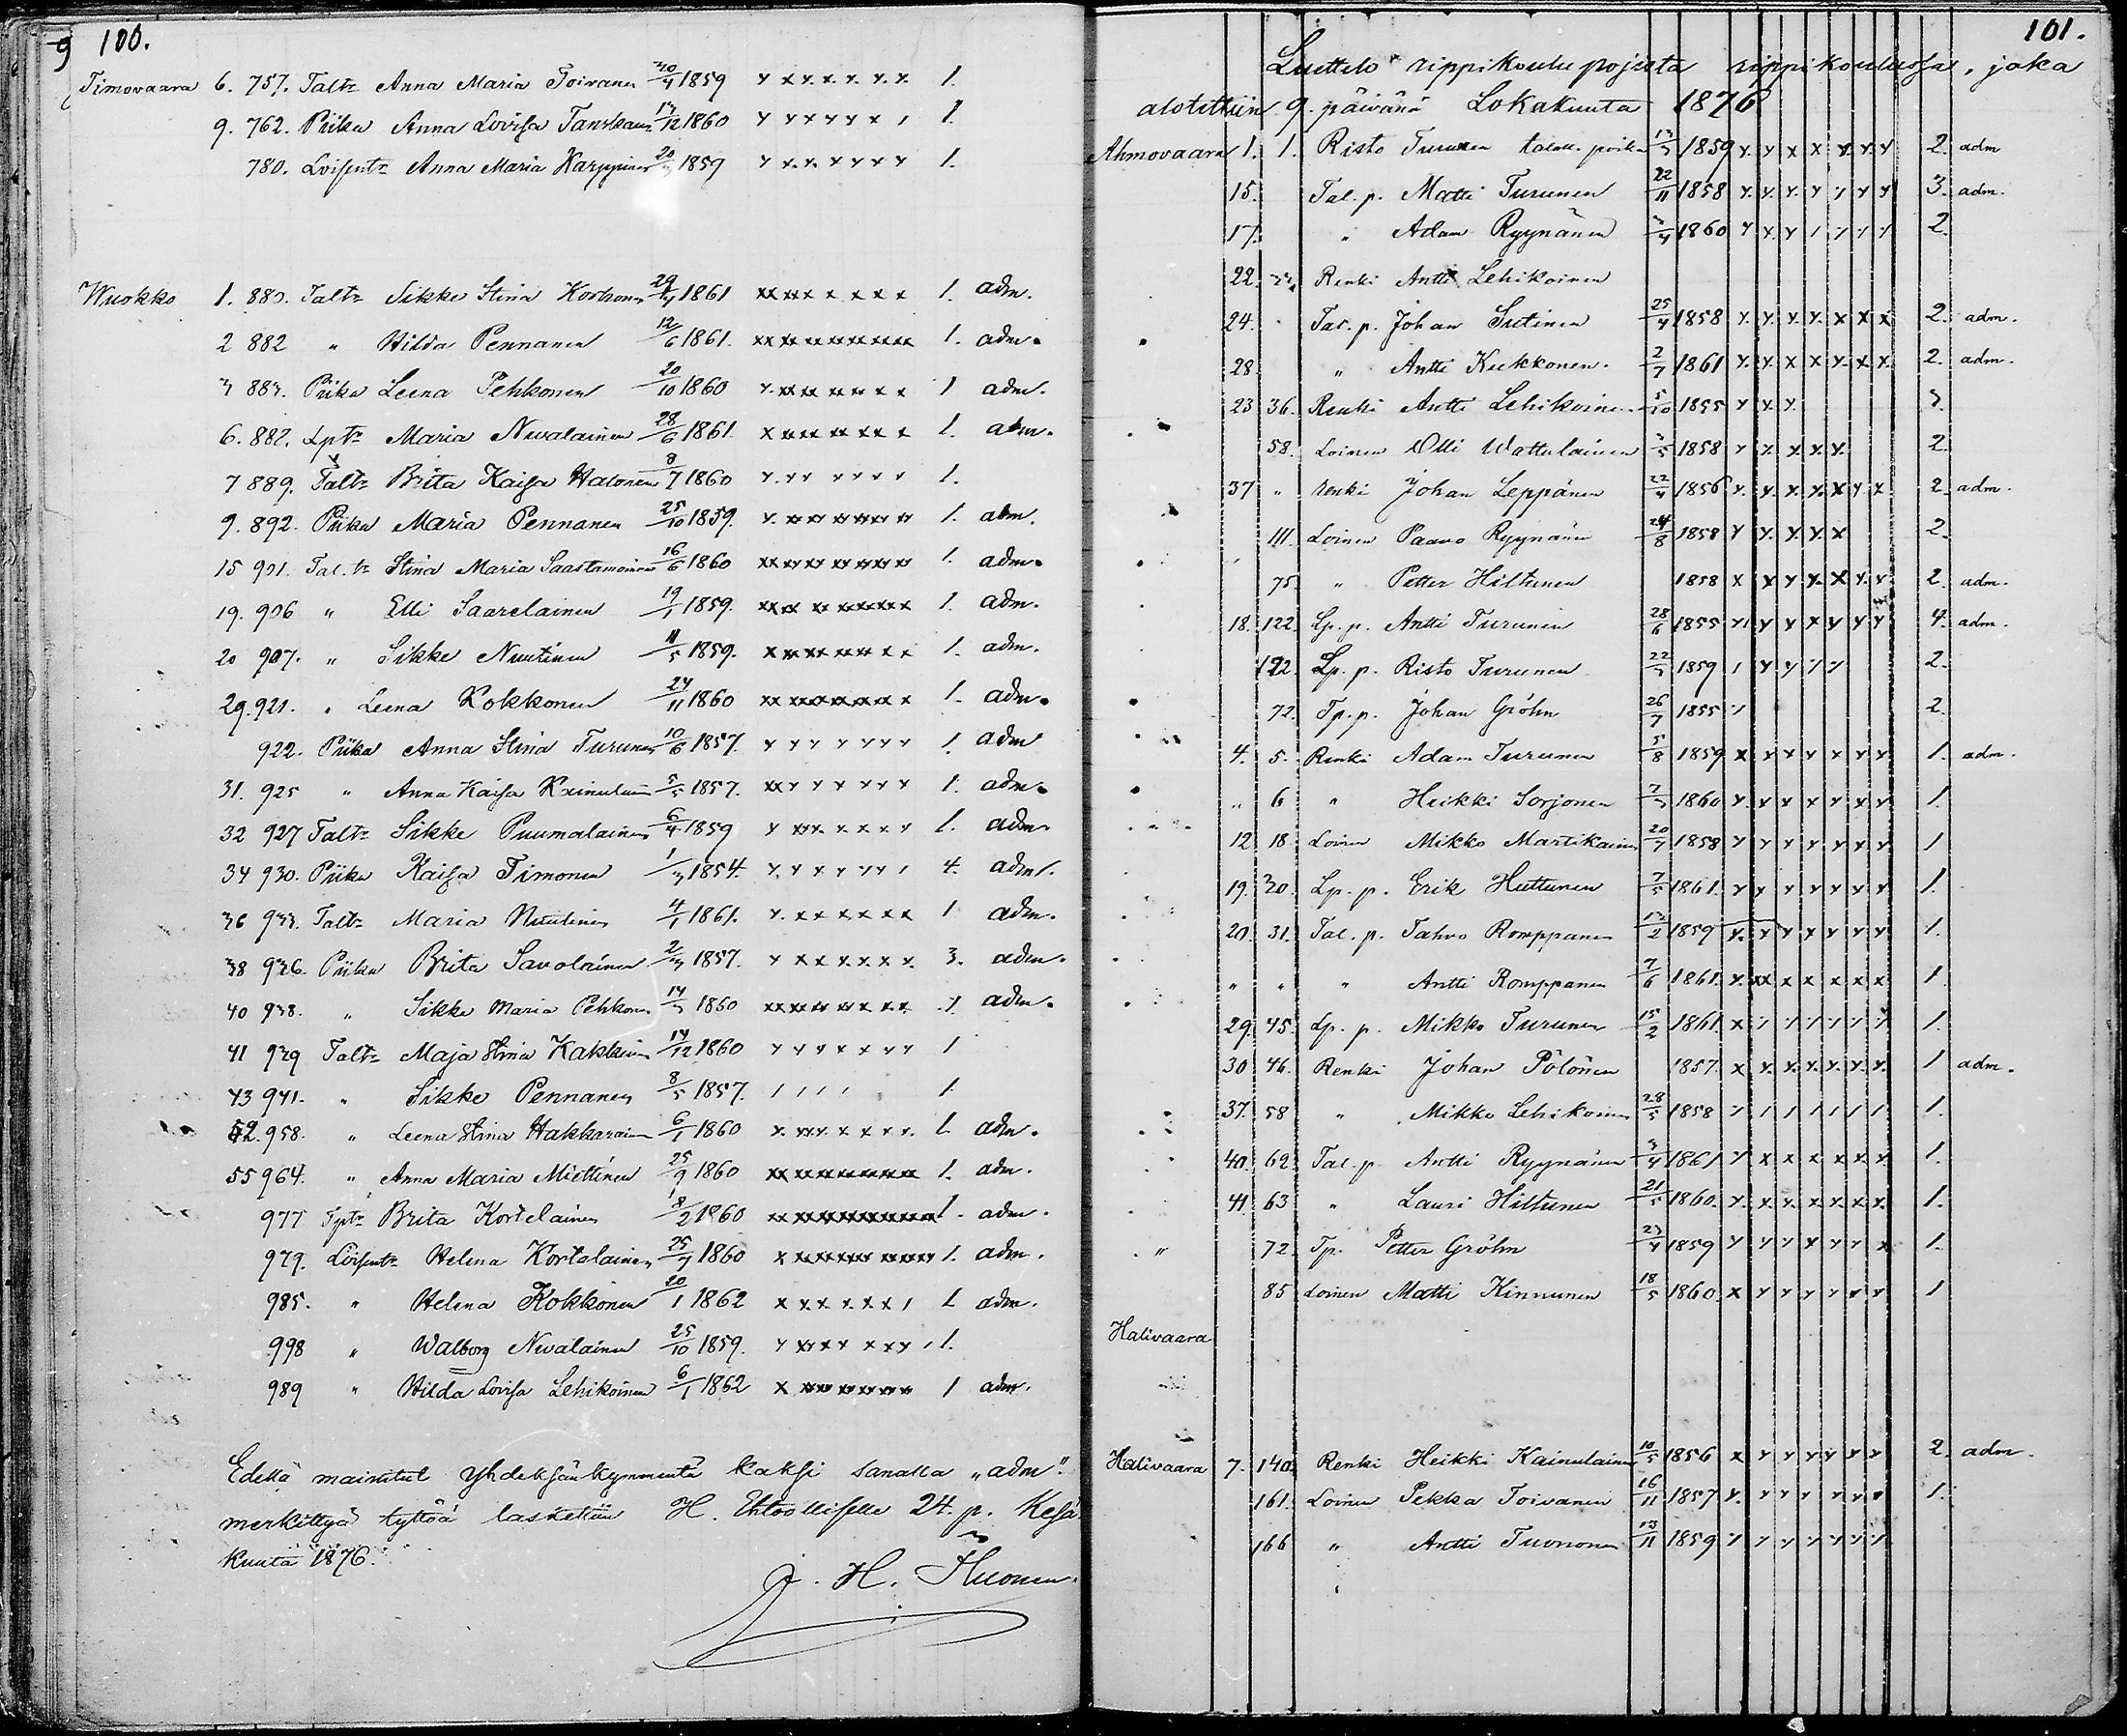 100.
Timovaara 6. 757. Taltr Anna Maria Toivanen 30/4 1859 1.
9. 762. Piika Anna Lovisa Tanskanen 13/12 1860 1.
780. Loisentr Anna Maria Karppinen 20/3 1859 1.
Wuokko 1. 880. Taltr Sikke Stina Korhonen 29/4 1861 1. adm.
2 882 " Hilda Pennanen 12/6 1861. 1. adm.
3 883. Piika Leena Pehkonen 20/10 1860 1 adm.
6. 887. Lptr Maria Nevalainen 28/6 1861. 1. adm.
7 889. Taltr Brita Kaisa Halonen 8/7 1860 1.
9. 892. Piika Maria Pennanen 25/10 1859. 1. adm.
15 901. Tal.tr Stina Maria Saastamoinen 16/6 1860 1. adm.
19. 906 " Elli Saarelainen 19/1 1859. 1. adm.
20 907. " Sikke Nuutinen 11/5 1859. 1. adm.
29. 921. " Leena Kokkonen 24/11 1860 1. adm.
922. Piika Anna Stina Turunen 10/6 1857. 1. adm
31. 925 " Anna Kaisa Kainulainen 5/5 1857. 1. adm.
32 927 Taltr Sikke Puumalainen 6/4 1859 1. adm.
34 930. Piika Kaisa Timonen 1/3 1854. 4. adm.
36 933. Taltr Maria Nuutinen 4/1 1861. 1 adm.
38 936 Piika Brita Savolainen 2/3 1857. 3. adm.
40 938. " Sikke Maria Pehkonen 14/3 1860 1 adm.
41 939 Taltr Maja Stina Kakkinen 14/12 1860 1
43 941. " Sikke Pennanen 8/5 1857. 1
52. 958. " Leena Stina Hakkarainen 6/1 1860 1 adm.
55 964. " Anna Maria Miettinen 25/9 1860 1. adm.
977 Tptr Brita Kortelainen 18/2 1860 1. adm.
979. Loisentr Helena Kortelainen 25/7 1860 1. adm.
985. " Helena Kokkonen 20/1 1862 1 adm.
998 " Walborg Nevalainen 25/10 1859. 1.
989 " Hilda Lovisa Lehikoinen 6/1 1862 1 adm.
Edellä mainitut yhdeksänkymmentä kaksi sanalla "adm".
merkittyä tyttöä laskettiin H. Ehtoolliselle 24. p. Kesä
kuuta 1876.
J. H. Huonen.
101.
Luettelo rippikoulu pojista rippikoulussa, joka
alotettiin 9. päivänä Lokakuuta 1876
Ahmovaara 1. 1. Risto Turunen talon poika 13/3 1859 2. adm
15. Tal. p. Matti Turunen 22/11 1858 3. adm.
17. " Adam Ryynänen 3/4 1860 2.
22. 33. Renki Antti Lehikoinen
24. Tal. p. Johan Sutinen 25/4 1858 2. adm.
28 " Antti Kukkonen. 2/7 1861 2. adm.
23 36. Renki Antti Lehikoinen 5/10 1855 3.
58. Loinen Olli Wattulainen 3/5 1858 2.
37 " renki Johan Leppänen 22/4 1856 2. adm.
111. Loinen Paavo Ryynänen 24/8 1858 2.
75. " Petter Hiltunen 1858 2. adm.
18. 122. Lp. p. Antti Turunen 28/6 1855 4. adm.
122. Lp. p. Risto Turunen 22/3 1859 2.
72. Tp. p. Johan Gröhn 26/7 1855 2.
4. 5. Renki Adam Turunen 5/8 1859 1. adm.
" 6 " Heikki Sorjonen 7/3 1860 1.
12 18. Loinen Mikko Martikainen 20/7 1858 1
19. 30. Lp. p. Erik Huttunen 7/5 1861. 1.
20. 31. Tal. p. Tahvo Romppanen 13/2 1859 1.
" " " Antti Romppanen 7/6 1861. 1
29. 45. Lp. p. Mikko Turunen 15/2 1861. 1.
30 46. Renki Johan Pölönen 1857. 1 adm.
37. 58 " Mikko Lehikoinen 28/5 1858 1.
40. 62. Tal. p. Antti Ryynänen 3/4 1861 1.
41 63 " Lauri Hiltunen 21/5 1860. 1.
72. Tp. Petter Gröhn 23/4 1859 1.
85 Loinen Matti Kinnunen 18/5 1860. 1
Halivaara
Halivaara 7. 140. Renki Heikki Kainulainen 10/5 1856 2. adm.
161. Loinen Pekka Toivanen 16/11 1857 1.
166 " Antti Tuononen 13/11 1859